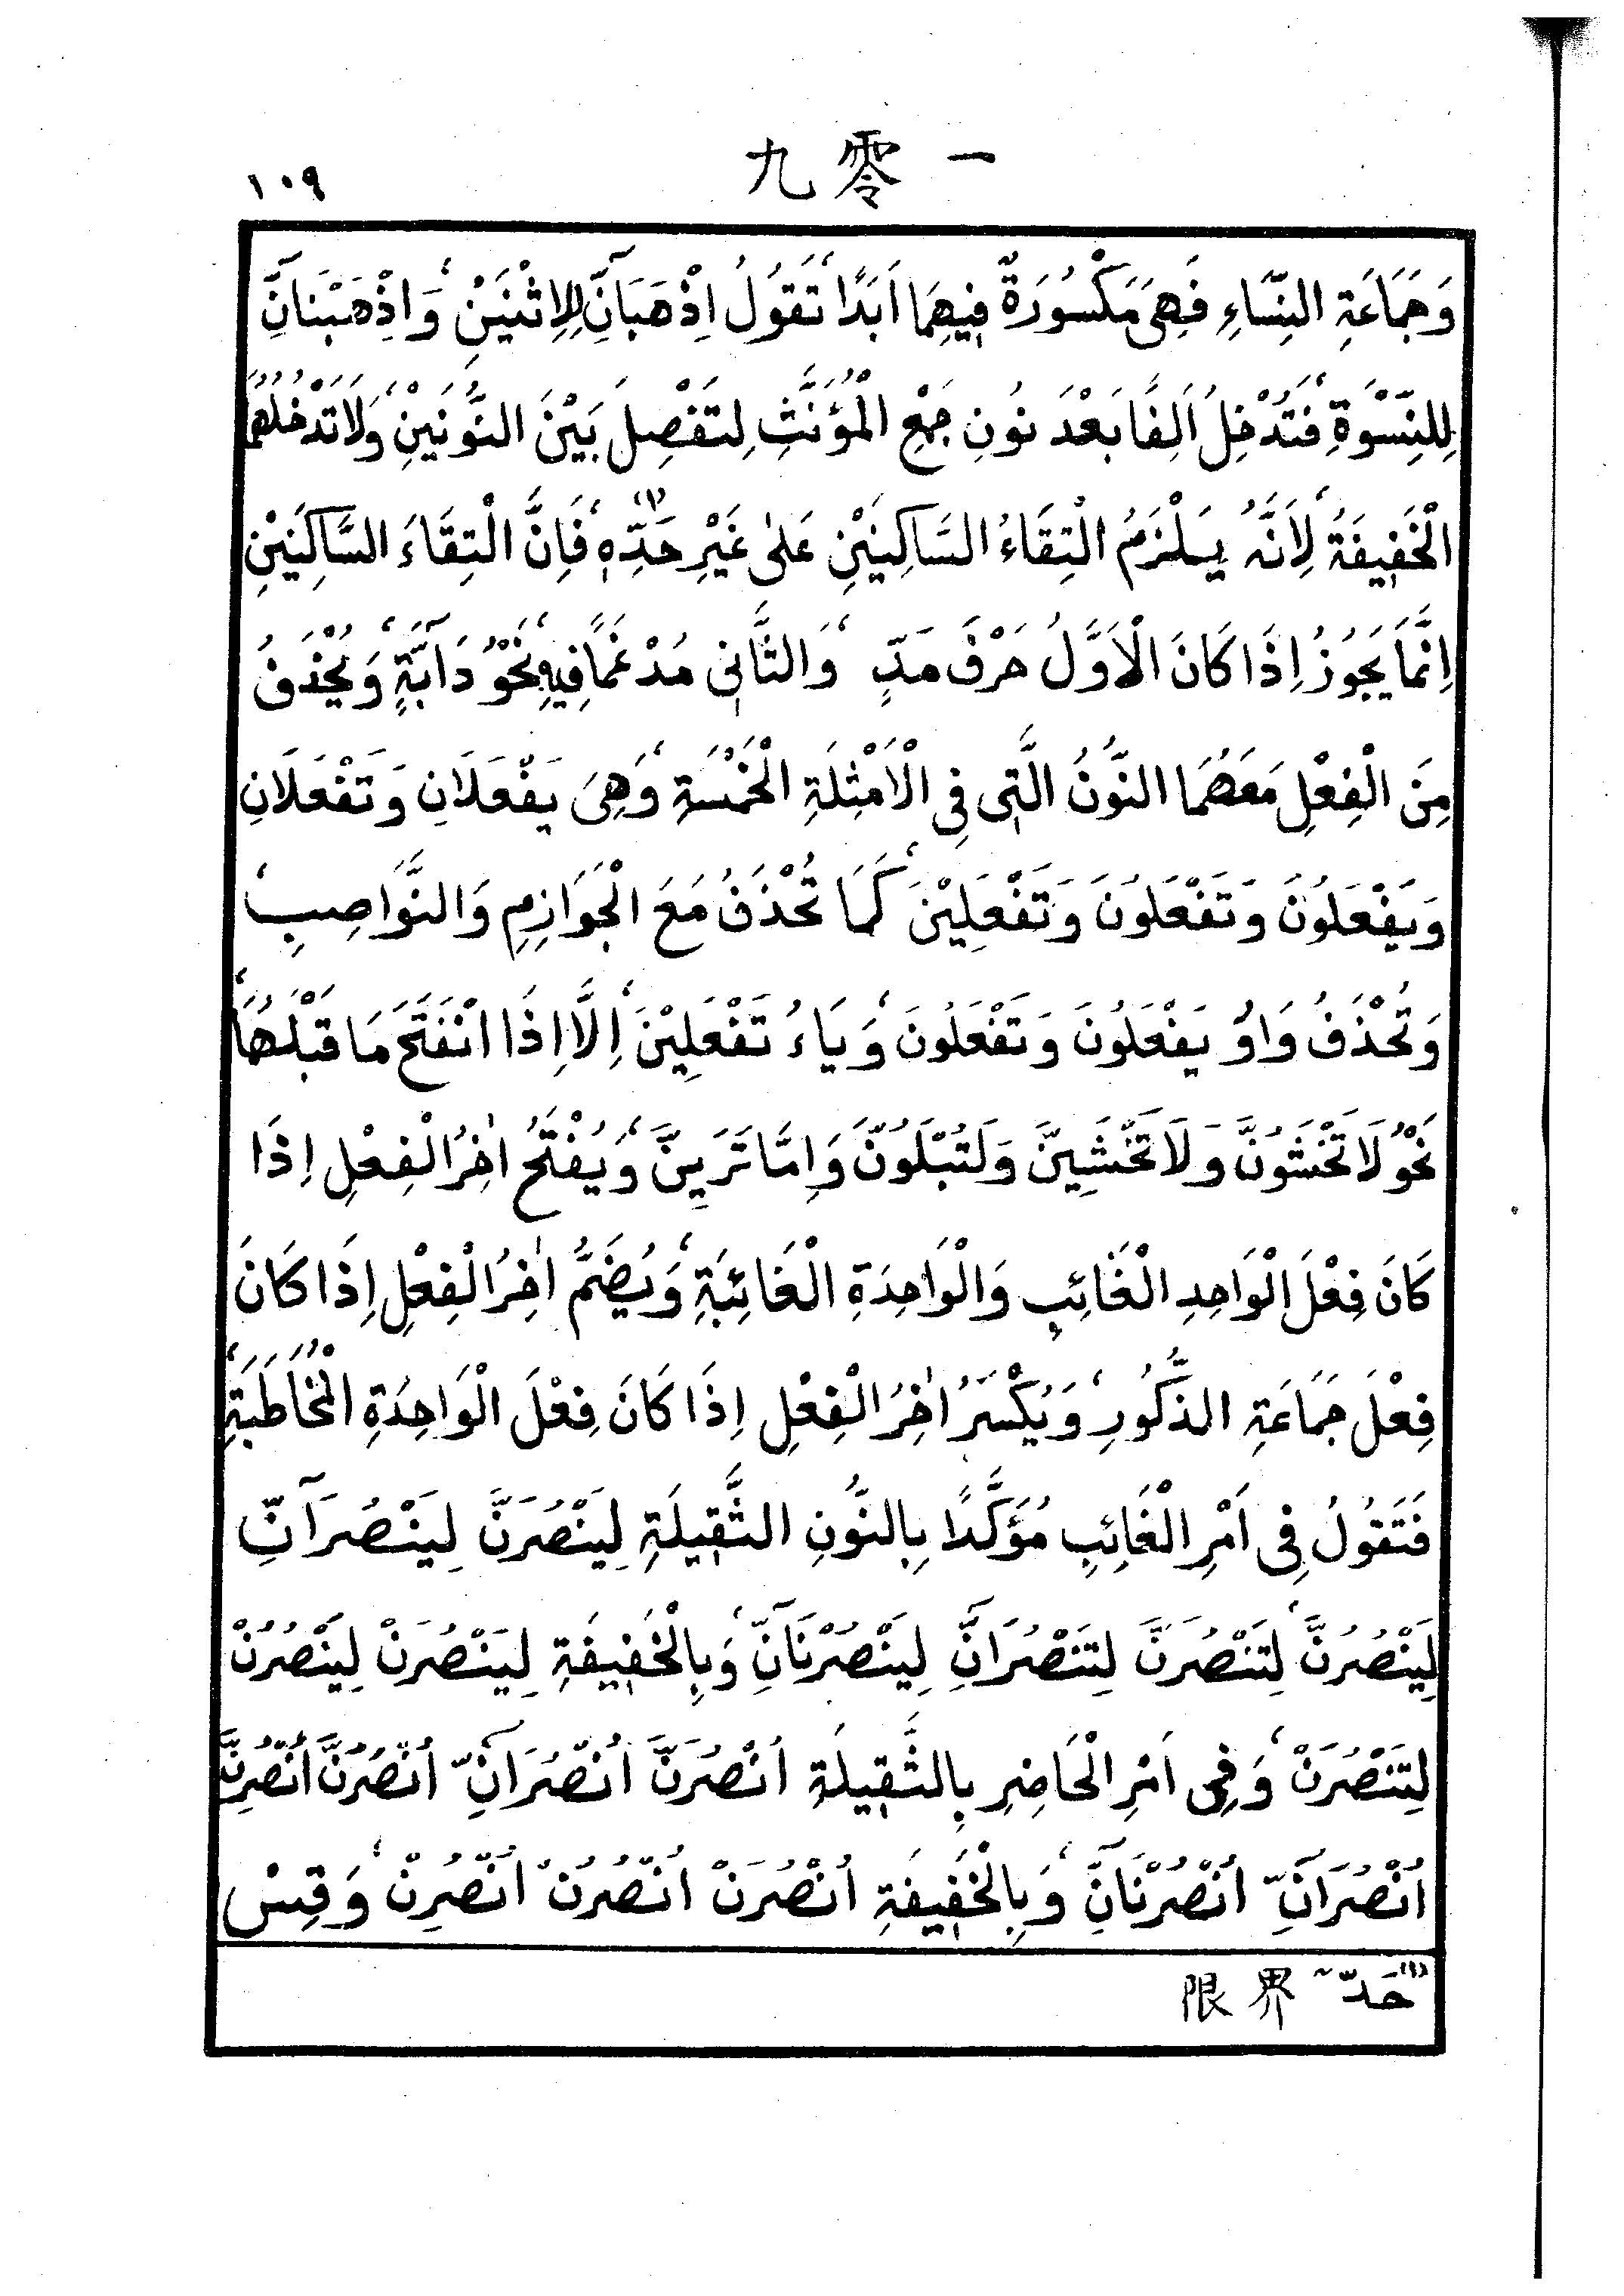 一零九
١٠٩
وَجَمَاعَةِ النِّسَاءِ فَهِيَ مَكْسُوْرَةٌ فِيهِمَا اَبَدًا، تَقُوْلُ اِذْهَبَآنِّ لِلْاِثْنَيْنِ، وَاذْهَبْنَانِّ
لِلنِّسْوَةِ، فَتُدْخِلُ اَلِفًا بَعْدَ نُونِ جَمْعِ الْمُؤَنَّثِ لِتَفْصِلَ بَيْنَ النُّونَيْنِ، وَلَا تَدْخُلُهُمَا
الْخَفِيفَةُ، لِاَنَّهُ يَلْزَمُ الْتِقَاءُ السَّاكِنَيْنِ عَلٰى غَيْرِ حَدِّهِ(١)، فَاِنَّ الْتِقَاءَ السَّاكِنَيْنِ
اِنَّمَا يَجُوْزُ اِذَا كَانَ الْاَوَّلُ حَرْفَ مَدٍّ، وَالثَّانِي مُدْغَمًا فِيهِ، نَحْوُ دَآبَّةٍ، وَيُحْذَفُ
مِنَ الْفِعْلِ مَعَهُمَا النُّوْنُ الَّتِي فِي الْاَمْثِلَةِ الْخَمْسَةِ، وَهِيَ يَفْعَلَانِ وَتَفْعَلَانِ
وَيَفْعَلُوْنَ وَتَفْعَلُوْنَ وَتَفْعَلِيْنَ، كَمَا تُحْذَفُ مَعَ الْجَوَازِمِ وَالنَّوَاصِبِ،
وَتُحْذَفُ وَاوُ يَفْعَلُوْنَ وَتَفْعَلُوْنَ، وَيَاءُ تَفْعَلِيْنَ، اِلَّا اِذَا انْفَتَحَ مَا قَبْلَهُمَا،
نَحْوُ لَا تَخْشَوُنَّ وَلَا تَخْشَيِنَّ وَلَتُبْلَوُنَّ وَاِمَّا تَرَيِنَّ، وَيُفْتَحُ اٰخِرُ الْفِعْلِ اِذَا
كَانَ فِعْلَ الْوَاحِدِ الْغَائِبِ وَالْوَاحِدَةِ الْغَائِبَةِ، وَيُضَمُّ اٰخِرُ الْفِعْلِ اِذَا كَانَ
فِعْلَ جَمَاعَةِ الذُّكُورِ، وَيُكْسَرُ اٰخِرُ الْفِعْلِ اِذَا كَانَ فِعْلَ الْوَاحِدَةِ الْمُخَاطَبَةِ،
فَتَقُوْلُ فِي اَمْرِ الْغَائِبِ مُؤَكَّدًا بِالنُّوْنِ الثَّقِيلَةِ لِيَنْصُرَنَّ لِيَنْصُرَآنِّ
لِيَنْصُرُنَّ، لِتَنْصُرَنَّ لِتَنْصُرَآنِّ لِيَنْصُرْنَآنِّ، وَبِالْخَفِيفَةِ لِيَنْصُرَنْ لِيَنْصُرُنْ
لِتَنْصُرَنْ، وَفِي اَمْرِ الْحَاضِرِ بِالثَّقِيلَةِ اُنْصُرَنَّ اُنْصُرَآنِّ اُنْصُرُنَّ اُنْصُرِنَّ
اُنْصُرَآنِّ اُنْصُرْنَآنِّ، وَبِالْخَفِيفَةِ اُنْصُرَنْ اُنْصُرُنْ اُنْصُرِنْ، وَقِسْ
(١) حَدّ ~ 界限